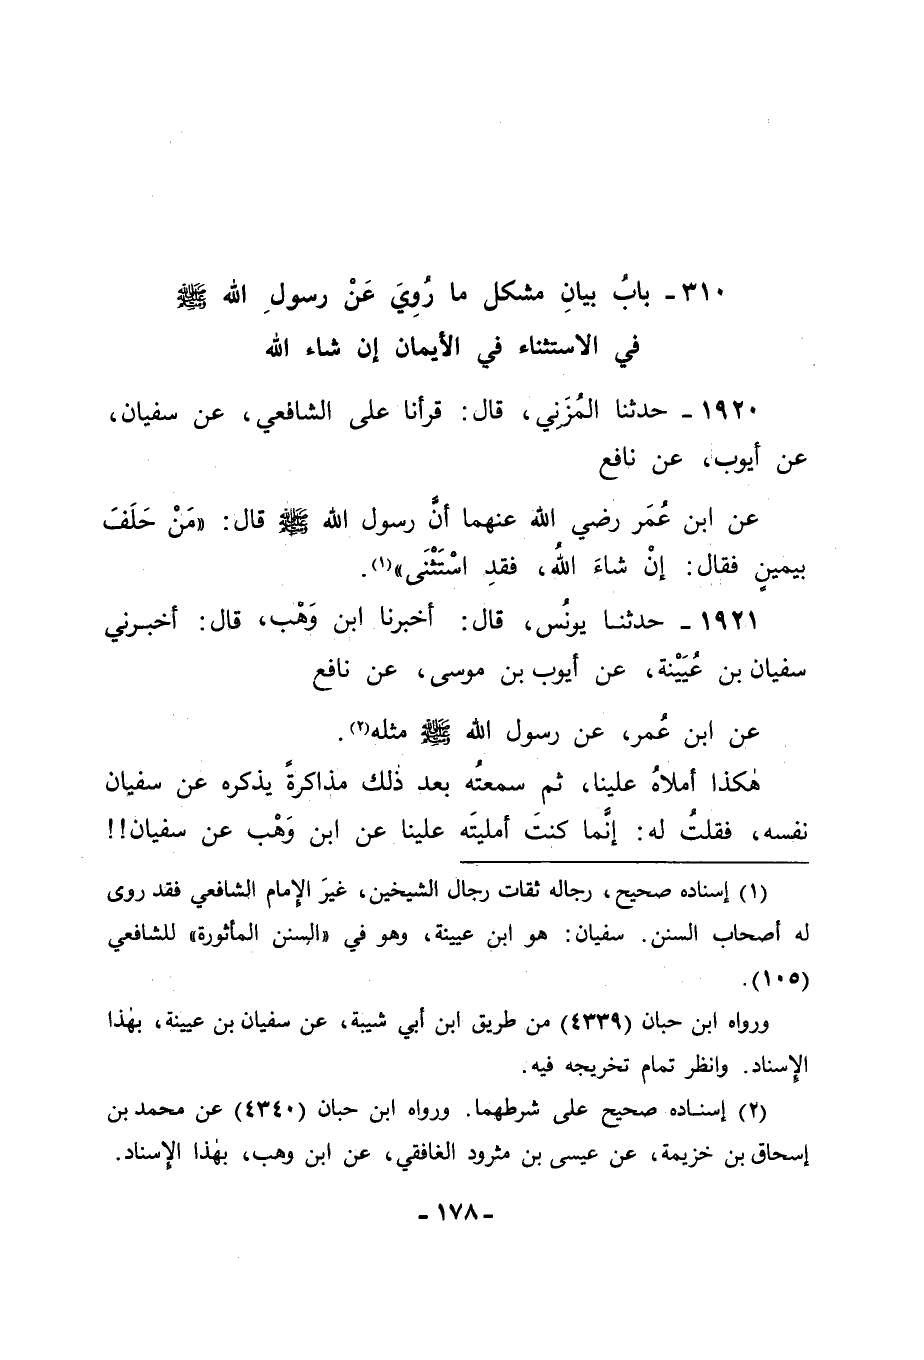 ٣١٠ـ بابُ بيانِ مشكل ما رُوِيَ عَنْ رسولِ الله ﷺ
في الاستثناء في الأيمان إن شاء الله
١٩٢٠ ـ حدثنا المُزَنِي، قال: قرأنا على الشافعي، عن سفيان،
عن أيوب، عن نافع
عن ابن عُمَر رضي الله عنهما أنَّ رسول الله ﷺ قال: «مَنْ حَلَفَ
بيمينٍ فقال: إنْ شاءَ اللهُ، فقدِ اسْتَثْنَى»(١).
١٩٢١ ـ حدثنا يونُس، قال: أخبرنا ابن وَهْب، قال: أخبرني
سفيان بن عُيَيْنة، عن أيوب بن موسى، عن نافع
عن ابن عُمر، عن رسول الله ﷺ مثله(٢).
هٰكذا أملاهُ علينا، ثم سمعتُه بعد ذٰلك مذاكرةً يذكره عن سفيان
نفسه، فقلتُ له: إنَّما كنتَ أمليتَه علينا عن ابن وَهْب عن سفيان!!
(١) إسناده صحيح، رجاله ثقات رجال الشيخين، غيرَ الإمام الشافعي فقد روى
له أصحاب السنن. سفيان: هو ابن عيينة، وهو في «السنن المأثورة» للشافعي
(١٠٥).
ورواه ابن حبان (٤٣٣٩) من طريق ابن أبي شيبة، عن سفيان بن عيينة، بهٰذا
الإسناد. وانظر تمام تخريجه فيه.
(٢) إسناده صحيح على شرطهما. ورواه ابن حبان (٤٣٤٠) عن محمد بن
إسحاق بن خزيمة، عن عيسى بن مثرود الغافقي، عن ابن وهب، بهٰذا الإسناد.
ـ ١٧٨ ـ